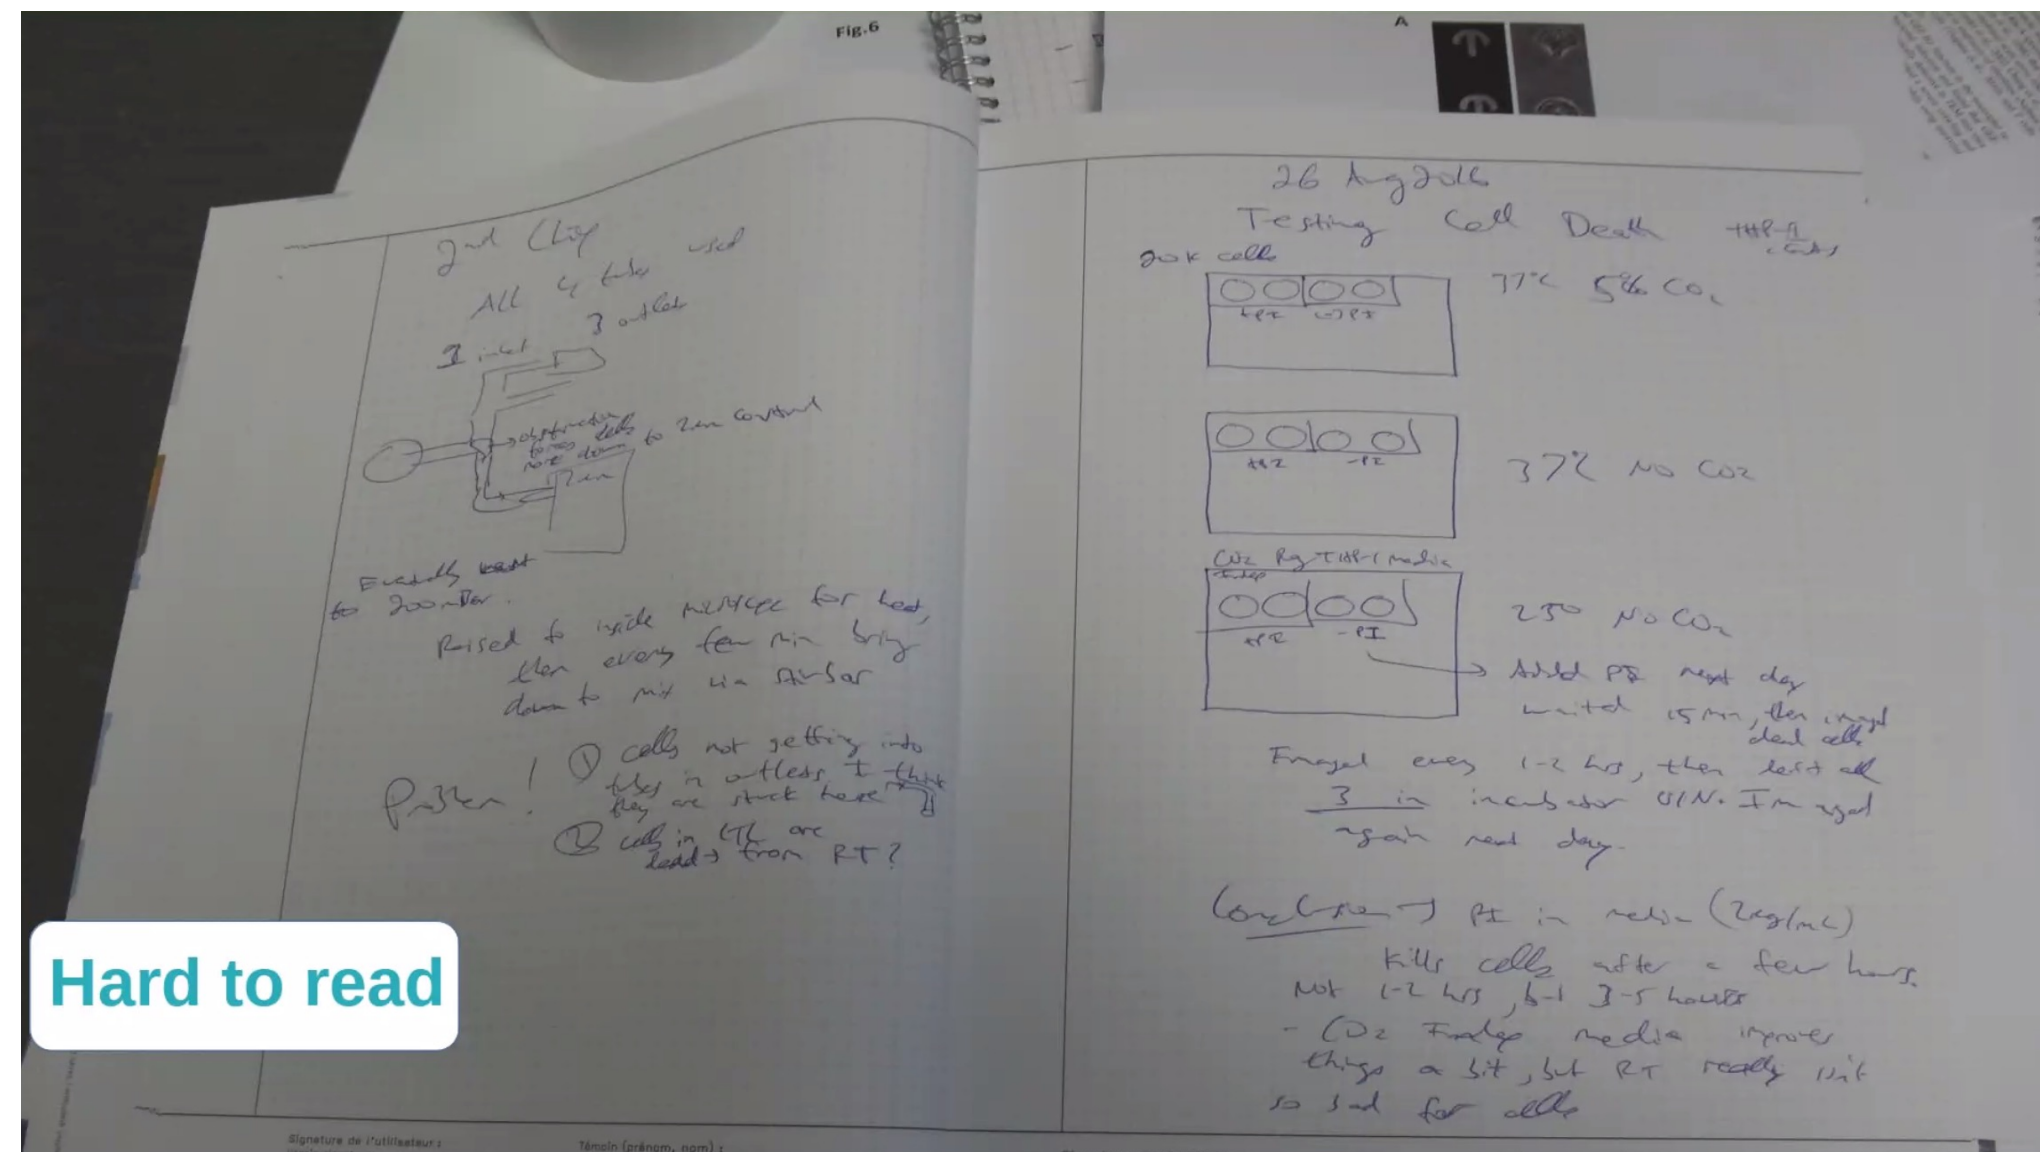 Fig.6
A
2nd Chip
All 4 tubes used
1 inlet
3 outlets
obstruction
forces cells
more down to 2nm control
Eventually went
to 200mBar.
Raised to inside for heat,
then every few min bring
down to mix via Airbar
Problem!
① cells not getting into
tubes in outlets, I think
they are stuck here
② cells in CTL are
dead → from RT?
26 Aug 2016
Testing Cell Death THP-1
20K cells
37°C 5% CO2
+PI (-)PI
+PI -PI
37°C NO CO2
CO2 THP-1 media
Indep
+PI -PI
25° NO CO2
→ Added PI next day
waited 15 min, then imaged
dead cells
Imaged every 1-2 hrs, then left all
3 in incubator O/N. Imaged
again next day.
Conclusion → PI in media (2ug/mL)
Kills cells after a few hours.
Not 1-2 hrs, but 3-5 hours
- CO2 Indep media improves
things a bit, but RT really isn't
so bad for cells
Hard to read
Signature de l'utilisateur :
Témoin (prénom, nom) :